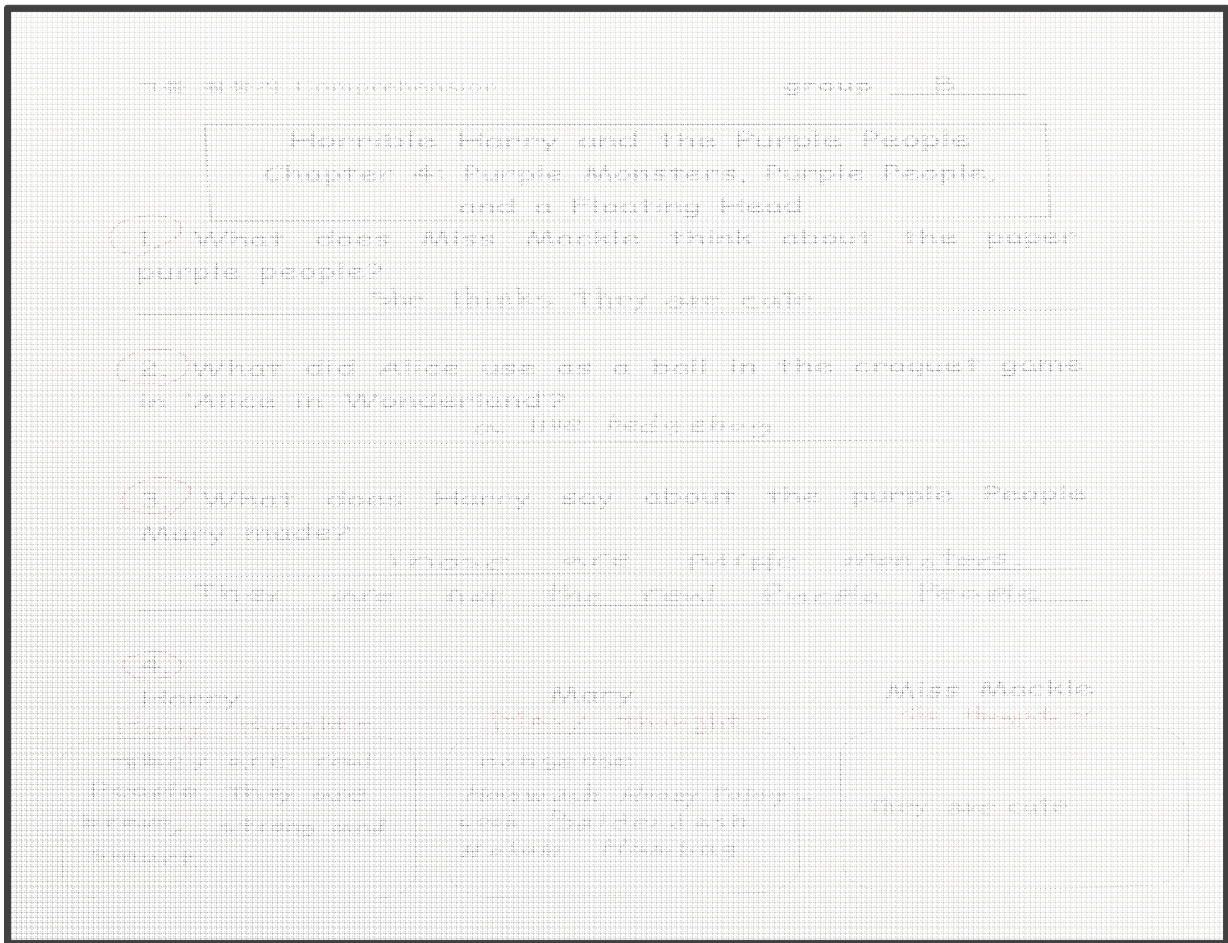 Comprehension group B
Horrible Harry and the Purple People
Chapter 4: Purple Monsters, Purple People,
and a Floating Head
1. What does Miss Mackle think about the paper
purple people?
She thinks They are cute
2. What did Alice use as a ball in the croquet game
in 'Alice in Wonderland'?
a live hedgehog
3. What does Harry say about the purple People
Mary made?
Those are purple monsters.
They are not the real Purple People
4.
Harry Mary Miss Mackle
thought thought thought
They are real
People They are
brave, strong and
smart
They are cute